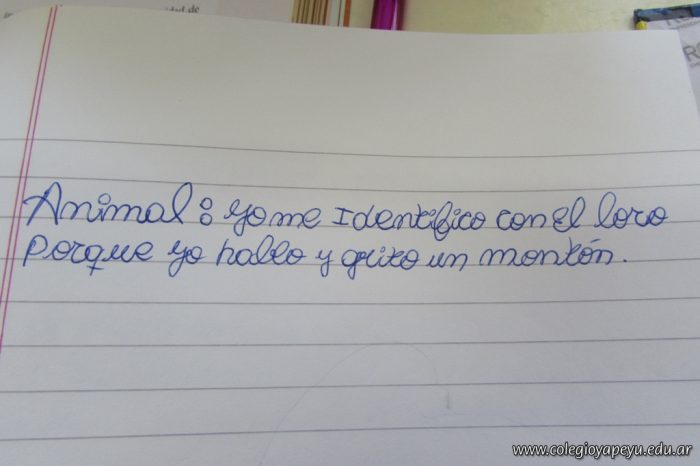 idad de
Animal: yo me Identifico con El loro
Porque yo hablo y grito un montón.
www.colegioyapeyu.edu.ar